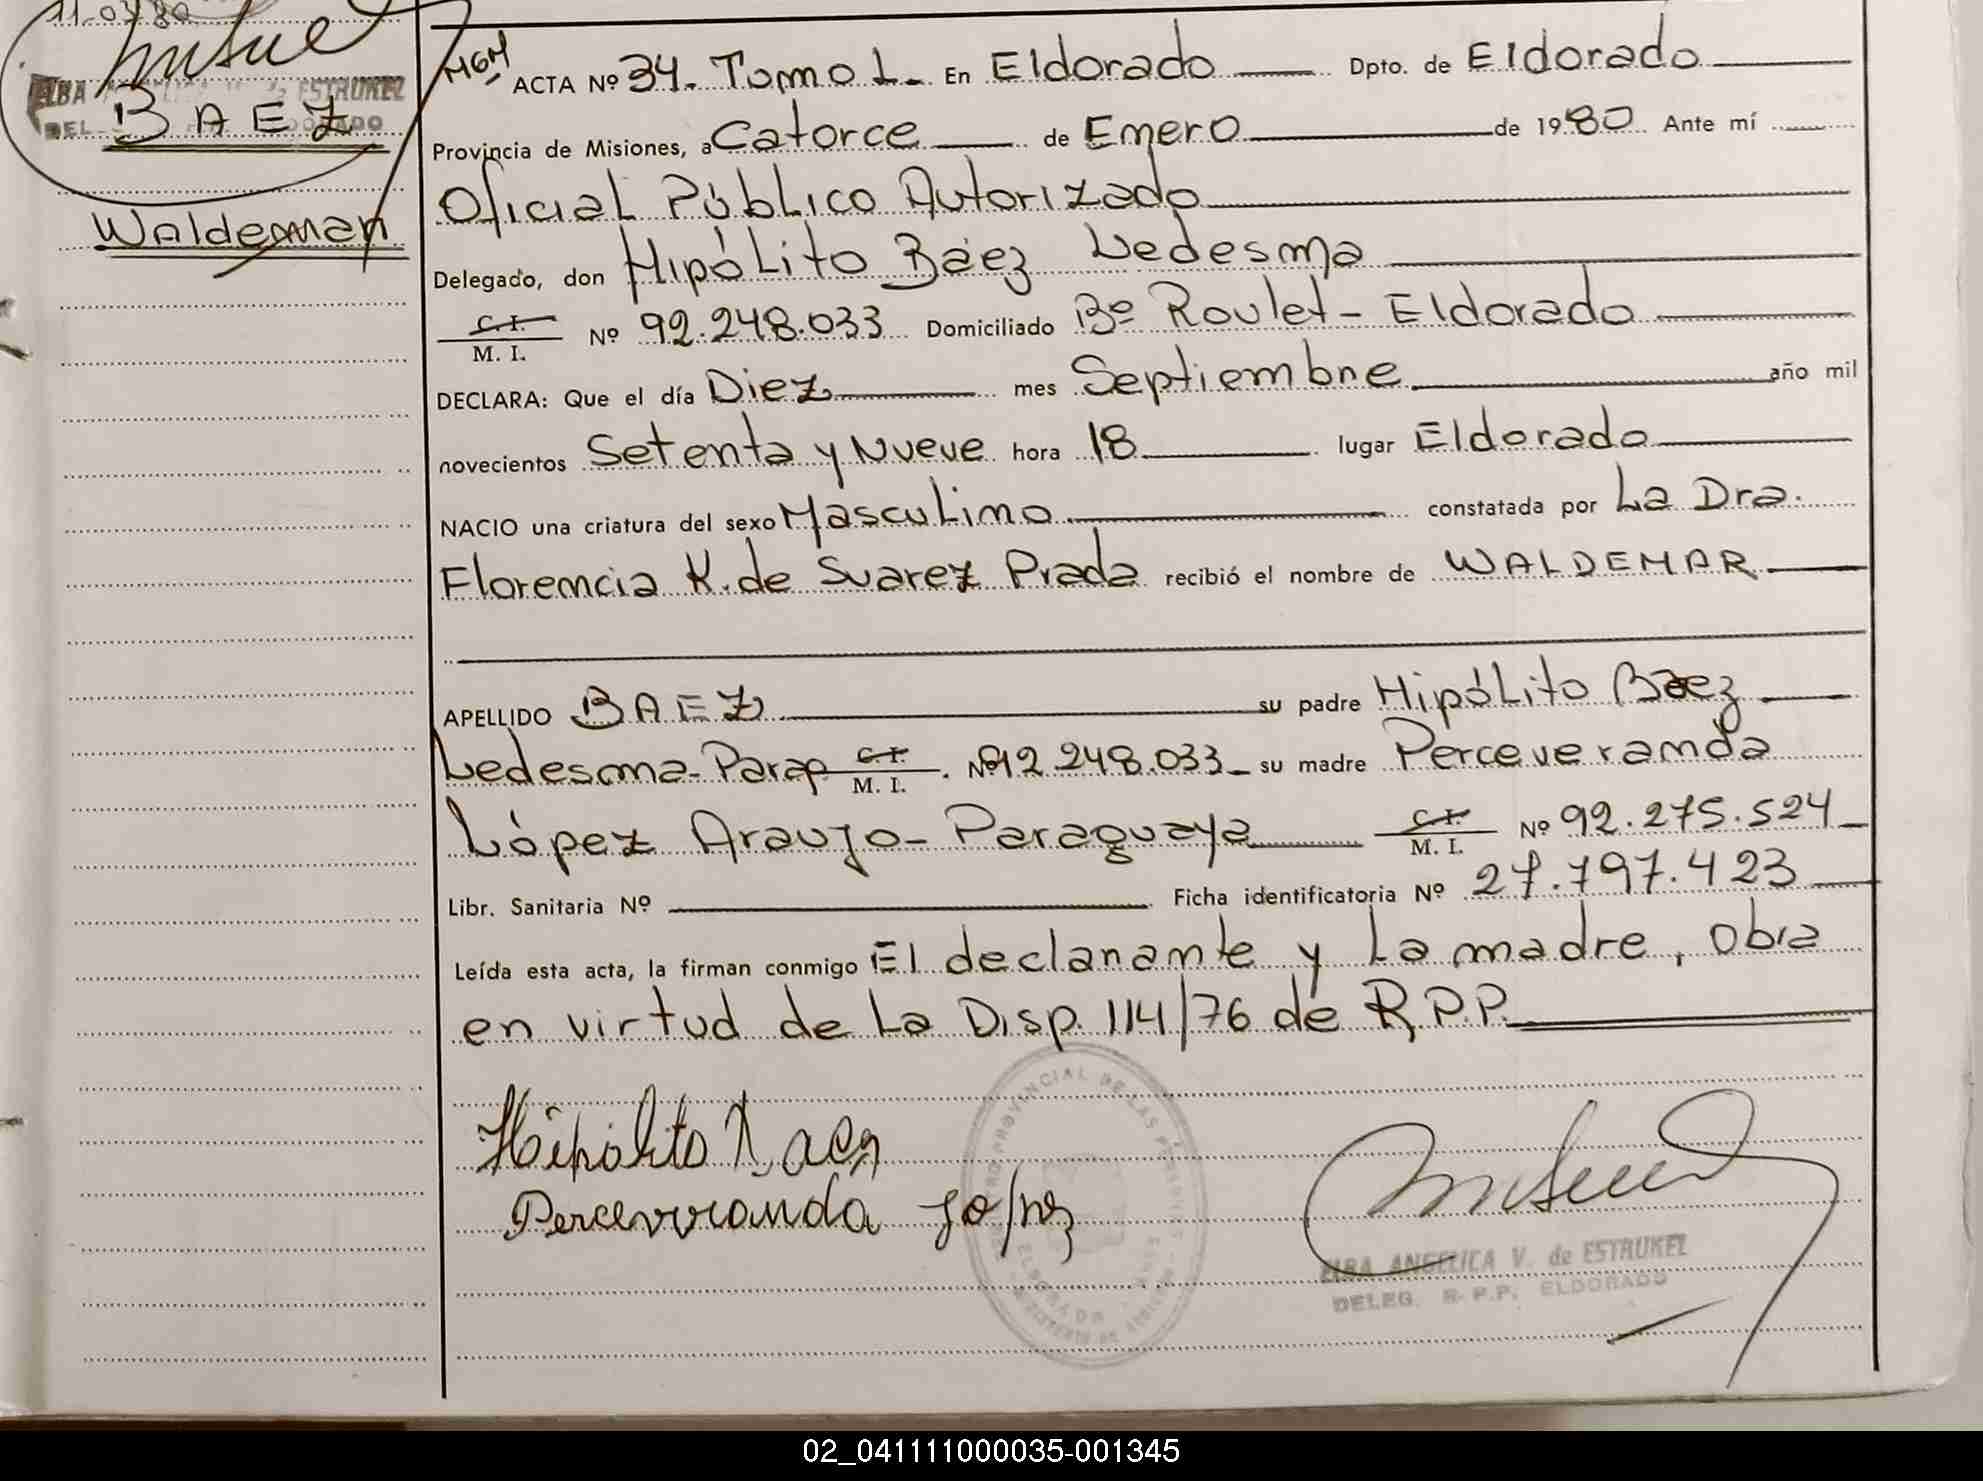 11-04-80
ELBA ESTRUKEL
BAEZ
DEL
Waldemar
MGM ACTA Nº 34. Tomo 1- En Eldorado Dpto. de Eldorado
Provincia de Misiones, a Catorce de Enero de 1980 Ante mí
Oficial Público Autorizado
Delegado, don Hipólito Báez Ledesma
C. I. / M. I. Nº 92.248.033 Domiciliado Bº Roulet - Eldorado
DECLARA: Que el día Diez mes Septiembre año mil
novecientos Setenta y Nueve hora 18 lugar Eldorado
NACIO una criatura del sexo Masculino constatada por La Dra.
Florencia K. de Suarez Prada recibió el nombre de WALDEMAR
APELLIDO BAEZ su padre Hipólito Báez
Ledesma - Parag C. I. / M. I. Nº 92 248.033 su madre Perceveranda
López Araujo - Paraguaya C. I. / M. I. Nº 92.275.524
Libr. Sanitaria Nº Ficha identificatoria Nº 27.797.423
Leída esta acta, la firman conmigo El declarante y La madre, obra
en virtud de La Disp. 114/76 de R.P.P.
Hipólito Baez
Perceveranda Lopez
REGISTRO PROVINCIAL DE LAS PERSONAS
ELDORADO
ELBA ANGELICA V. de ESTRUKEL
DELEG. R.P.P. ELDORADO
02_041111000035-001345